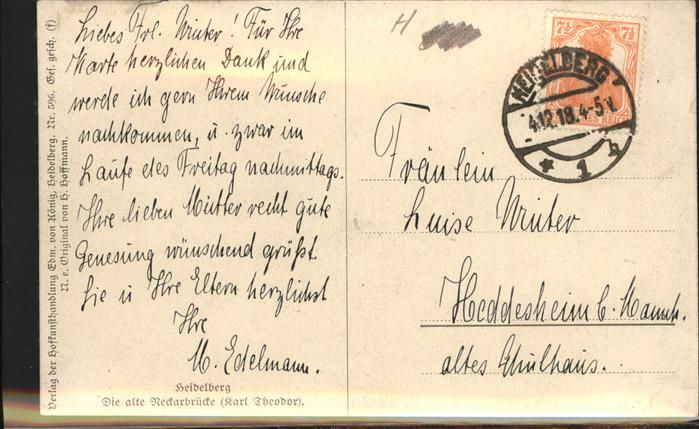 Liebes Frl. Winter! Für Ihre
Karte herzlichen Dank und
werde ich gern Ihrem Wunsche
nachkommen, u. zwar im
Laufe des Freitag nachmittags.
Ihre lieben Mutter recht gute
Genesung wünschend grüßt
Sie u Ihre Eltern herzlichst
Ihre
M. Edelmann.
Heidelberg
Die alte Neckarbrücke (Karl Theodor).
Verlag der Hofkunsthandlung Edm. von König, Heidelberg. Nr. 596. Ges. gesch. (f)
N. e. Original von H. Hoffmann.
H
7½ 7½
HEIDELBERG
4.12.18.4-5 N.
* 1 h
Fräulein
Luise Winter
Heddesheim b. Mannh.
altes Schulhaus.